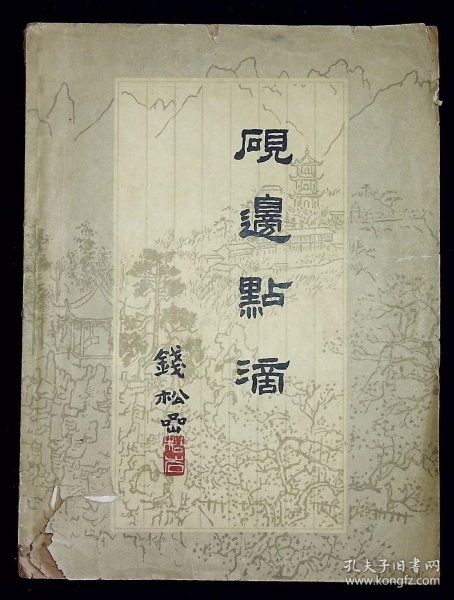 砚邊點滴
錢松嵒
孔夫子旧书网
www.kongfz.com